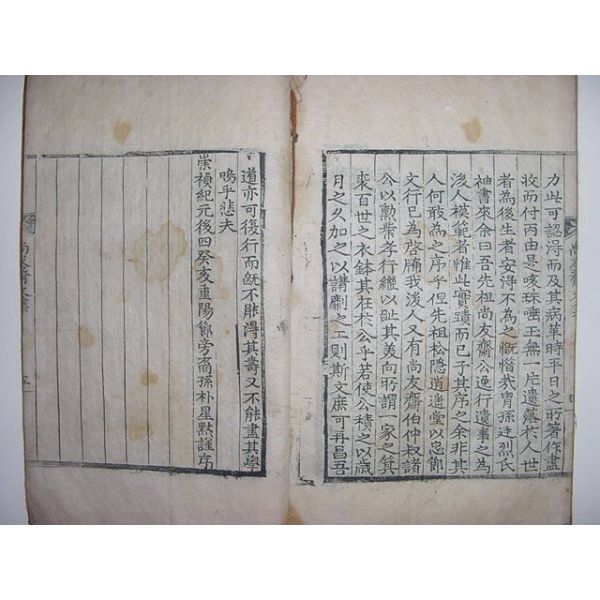 力此可認得而及其病革時平日之所著作盡
收而付丙由是咳珠唾玉無一片遺落於人世
者為後生者安得不為之慨惜我胄孫廷烈氏
袖書來余曰吾先祖尚友齋公逸行遺事之為
後人模範者惟此實蹟而已子其序之余非其
人何敢為之序乎但先祖松隱逍遥堂以忠節
文行已為啓牖我後人又有尚友齋伯仲叔諸
公以勲業孝行繼以趾其美向所謂一家之箕
裘百世之衣鉢其在於公乎若使公積之以歲
月之久加之以講劘之工則斯文庶可再昌吾
道亦可復行而旣不能得其壽又不能盡其學
嗚乎悲夫
崇禎紀元後四癸亥重陽節旁裔孫朴星默謹序